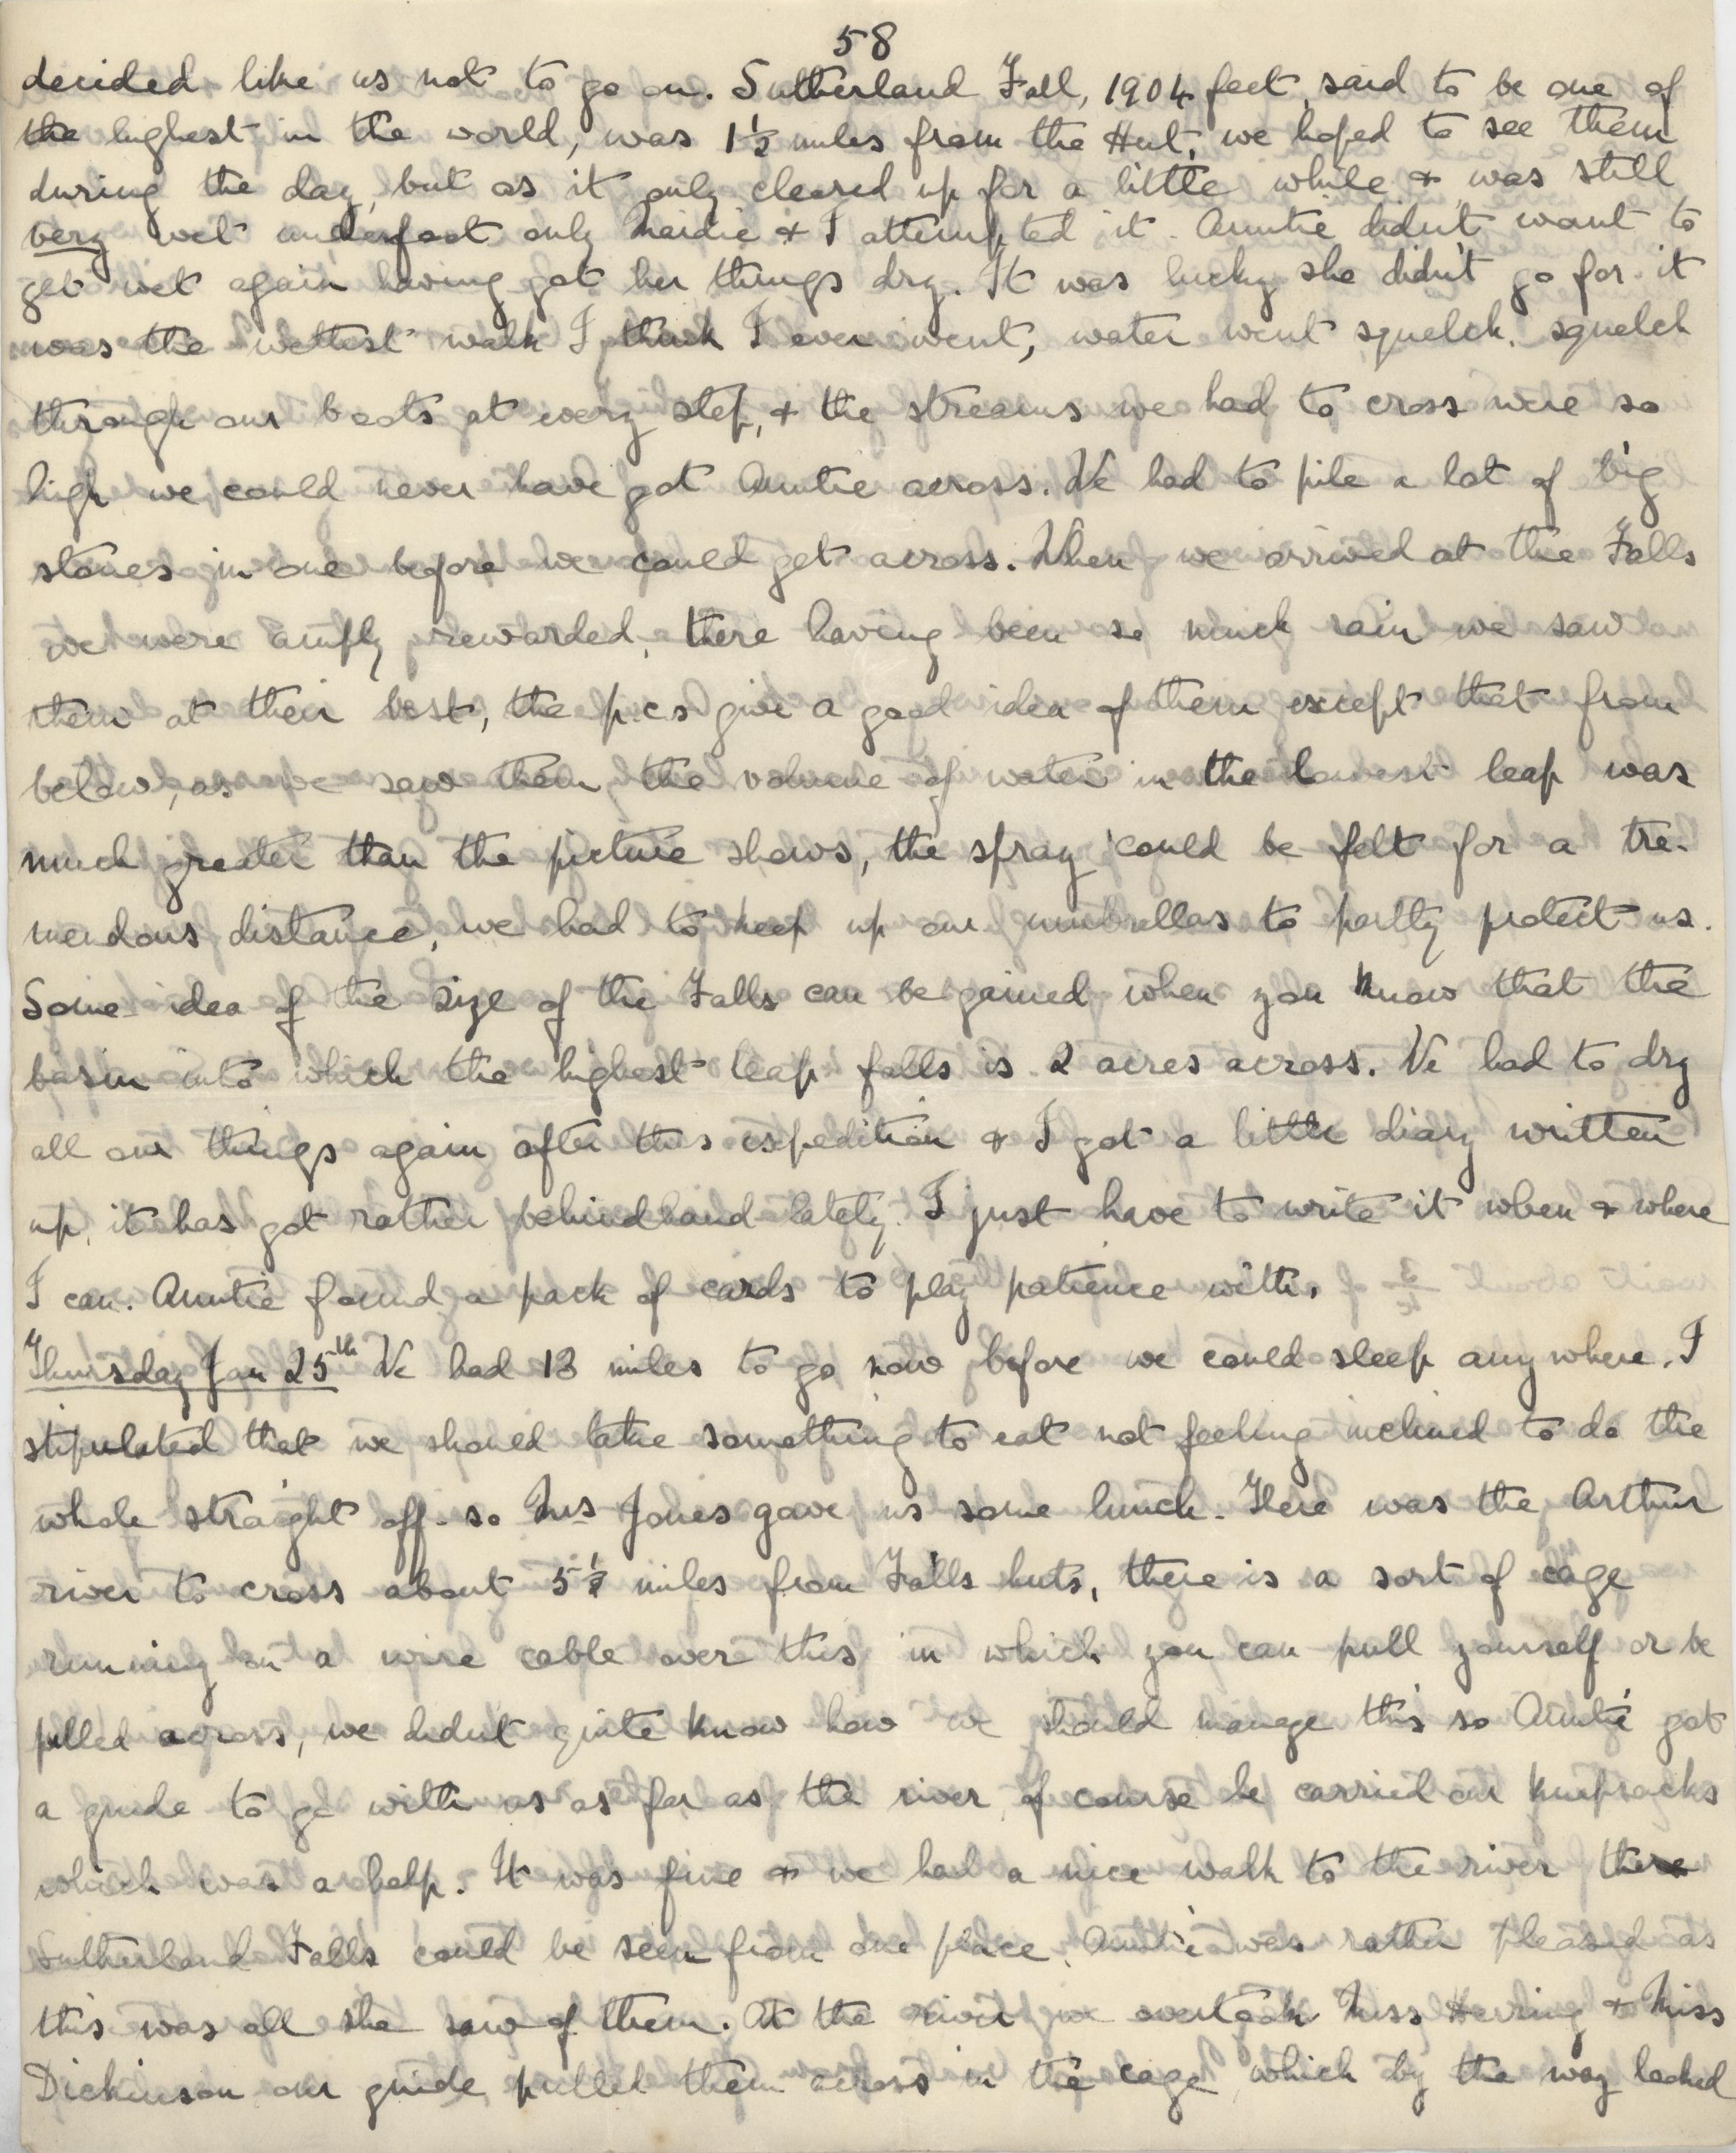 58
decided like us not to go on. Sutherland Fall, 1904 feet, said to be one of
the highest in the world, was 1½ miles from the Hut, we hoped to see them
during the day, but as it only cleared up for a little while & was still
very wet underfoot only Maidie & I attempted it. Auntie didn't want to
get wet again having got her things dry. It was lucky she didn't go for it
was the wettest walk I think I ever went, water went squelch, squelch
through our boots at every step, & the streams we had to cross were so
high we could never have got Auntie across. We had to pile a lot of big
stones in one before we could get across. When we arrived at the Falls
we were amply rewarded, there having been so much rain we saw
them at their best, the p.cs give a good idea of them except that from
below, as we saw them, the volume of water in the lowest leap was
much greater than the picture shows, the spray could be felt for a tre-
mendous distance, we had to keep up our umbrellas to partly protect us.
Some idea of the size of the Falls can be gained when you know that the
basin into which the highest leap falls is 2 acres across. We had to dry
all our things again after this expedition & I got a little diary written
up, it has got rather behindhand lately. I just have to write it when & where
I can. Auntie found a pack of cards to play patience with.
Thursday Jan 25th We had 13 miles to go now before we could sleep anywhere. I
stipulated that we should take something to eat not feeling inclined to do the
whole straight off so Mrs Jones gave us some lunch. There was the Arthur
river to cross about 5½ miles from Falls huts, there is a sort of cage
running on a wire cable over this in which you can pull yourself or be
pulled across, we didnt quite know how we should manage this so Auntie got
a guide to go with us as far as the river, of course he carried our knapsacks
which was a help. It was fine & we had a nice walk to the river there
Sutherland Falls could be seen from one place, Auntie was rather pleased as
this was all she saw of them. At the river we overtook Miss Hering & Miss
Dickinson our guide pulled them across in the cage which by the way looked